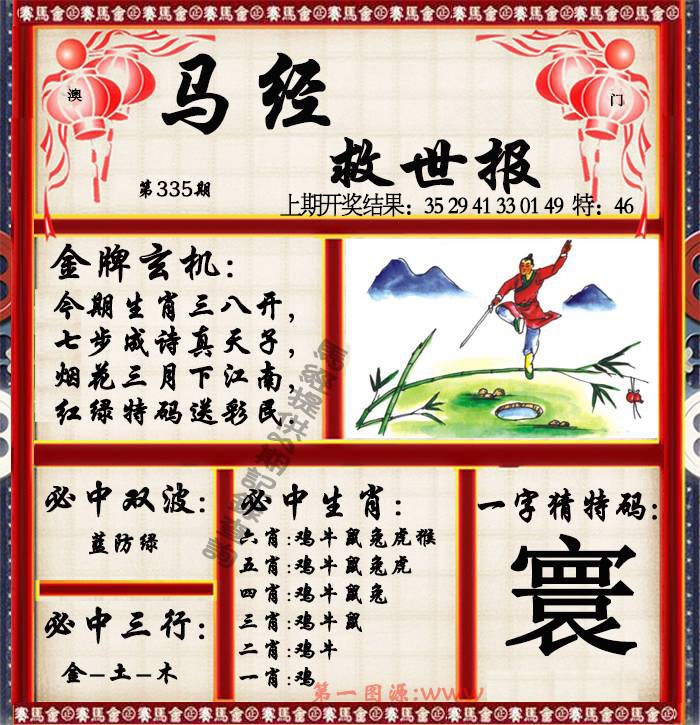 賽馬會
澳
门
马经
救世报
第335期
上期开奖结果：35 29 41 33 01 49 特：46
金牌玄机：
今期生肖三八开，
七步成诗真天子，
烟花三月下江南，
红绿特码送彩民.
必中双波：
蓝防绿
必中三行：
金-土-木
必中生肖：
六肖:鸡牛鼠兔虎猴
五肖:鸡牛鼠兔虎
四肖:鸡牛鼠兔
三肖:鸡牛鼠
二肖:鸡牛
一肖:鸡
一字猜特码：
寰
第一图源:www